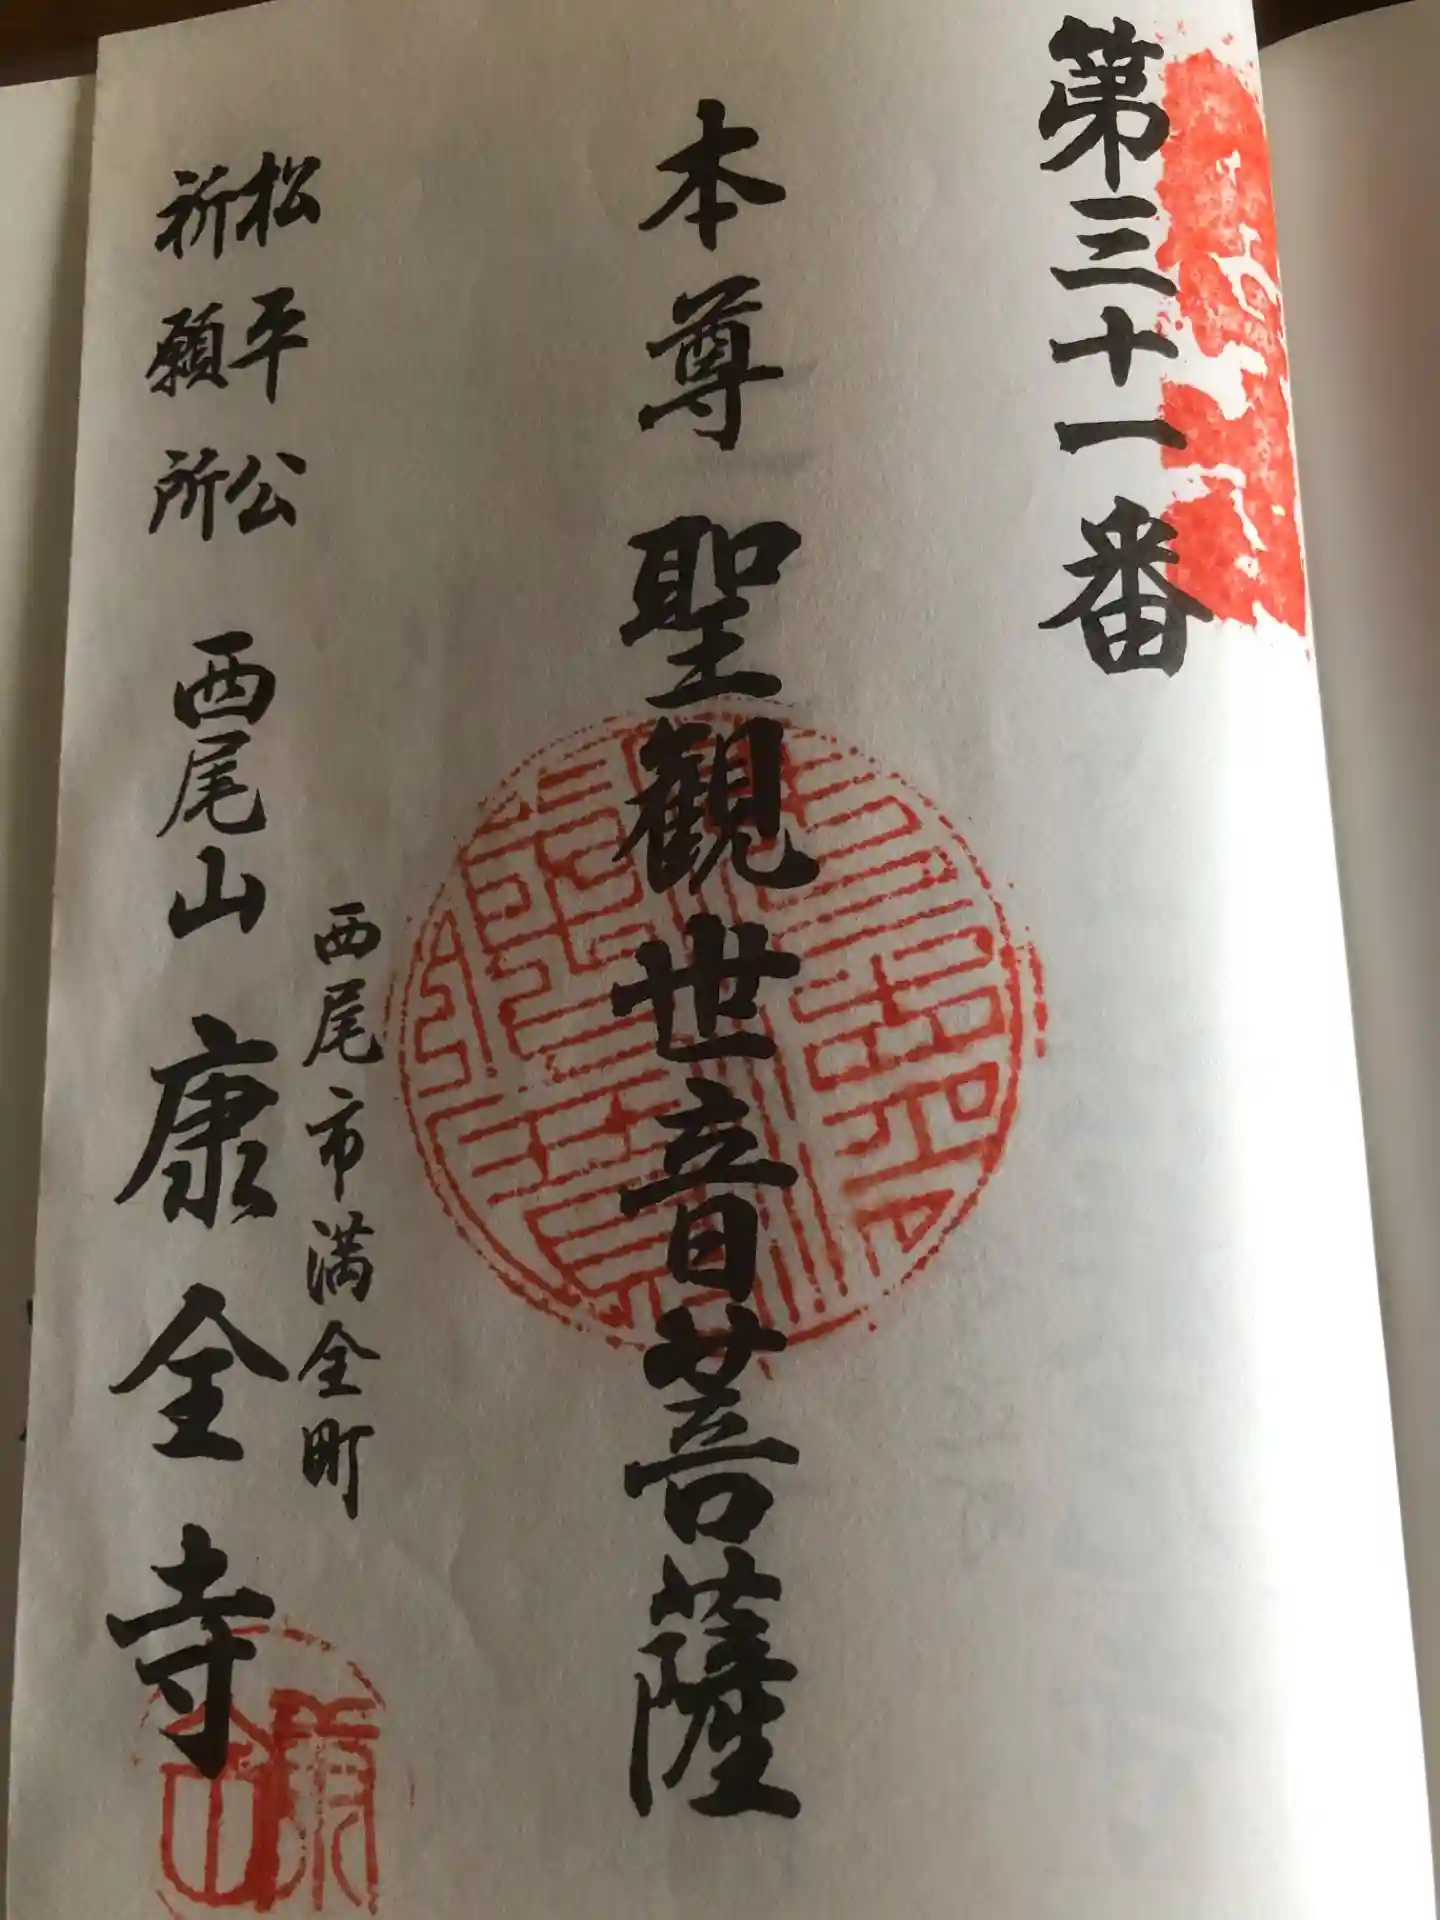 第三十一番
本尊 聖観世音菩薩
西尾市満全町
松平公
祈願所
西尾山 康全寺